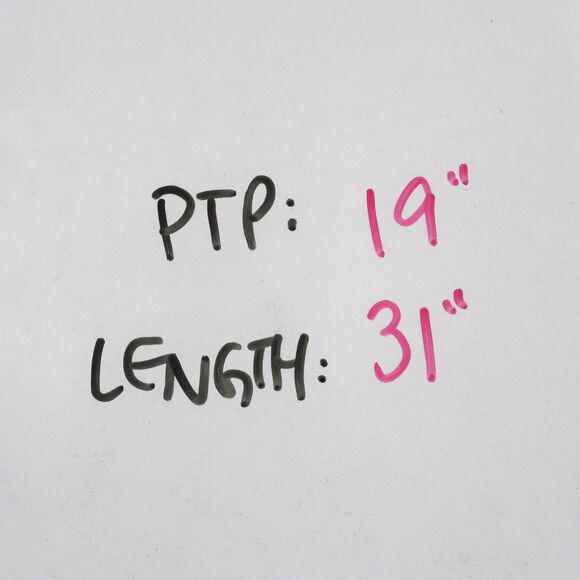 PTP: 19"
LENGTH: 31"